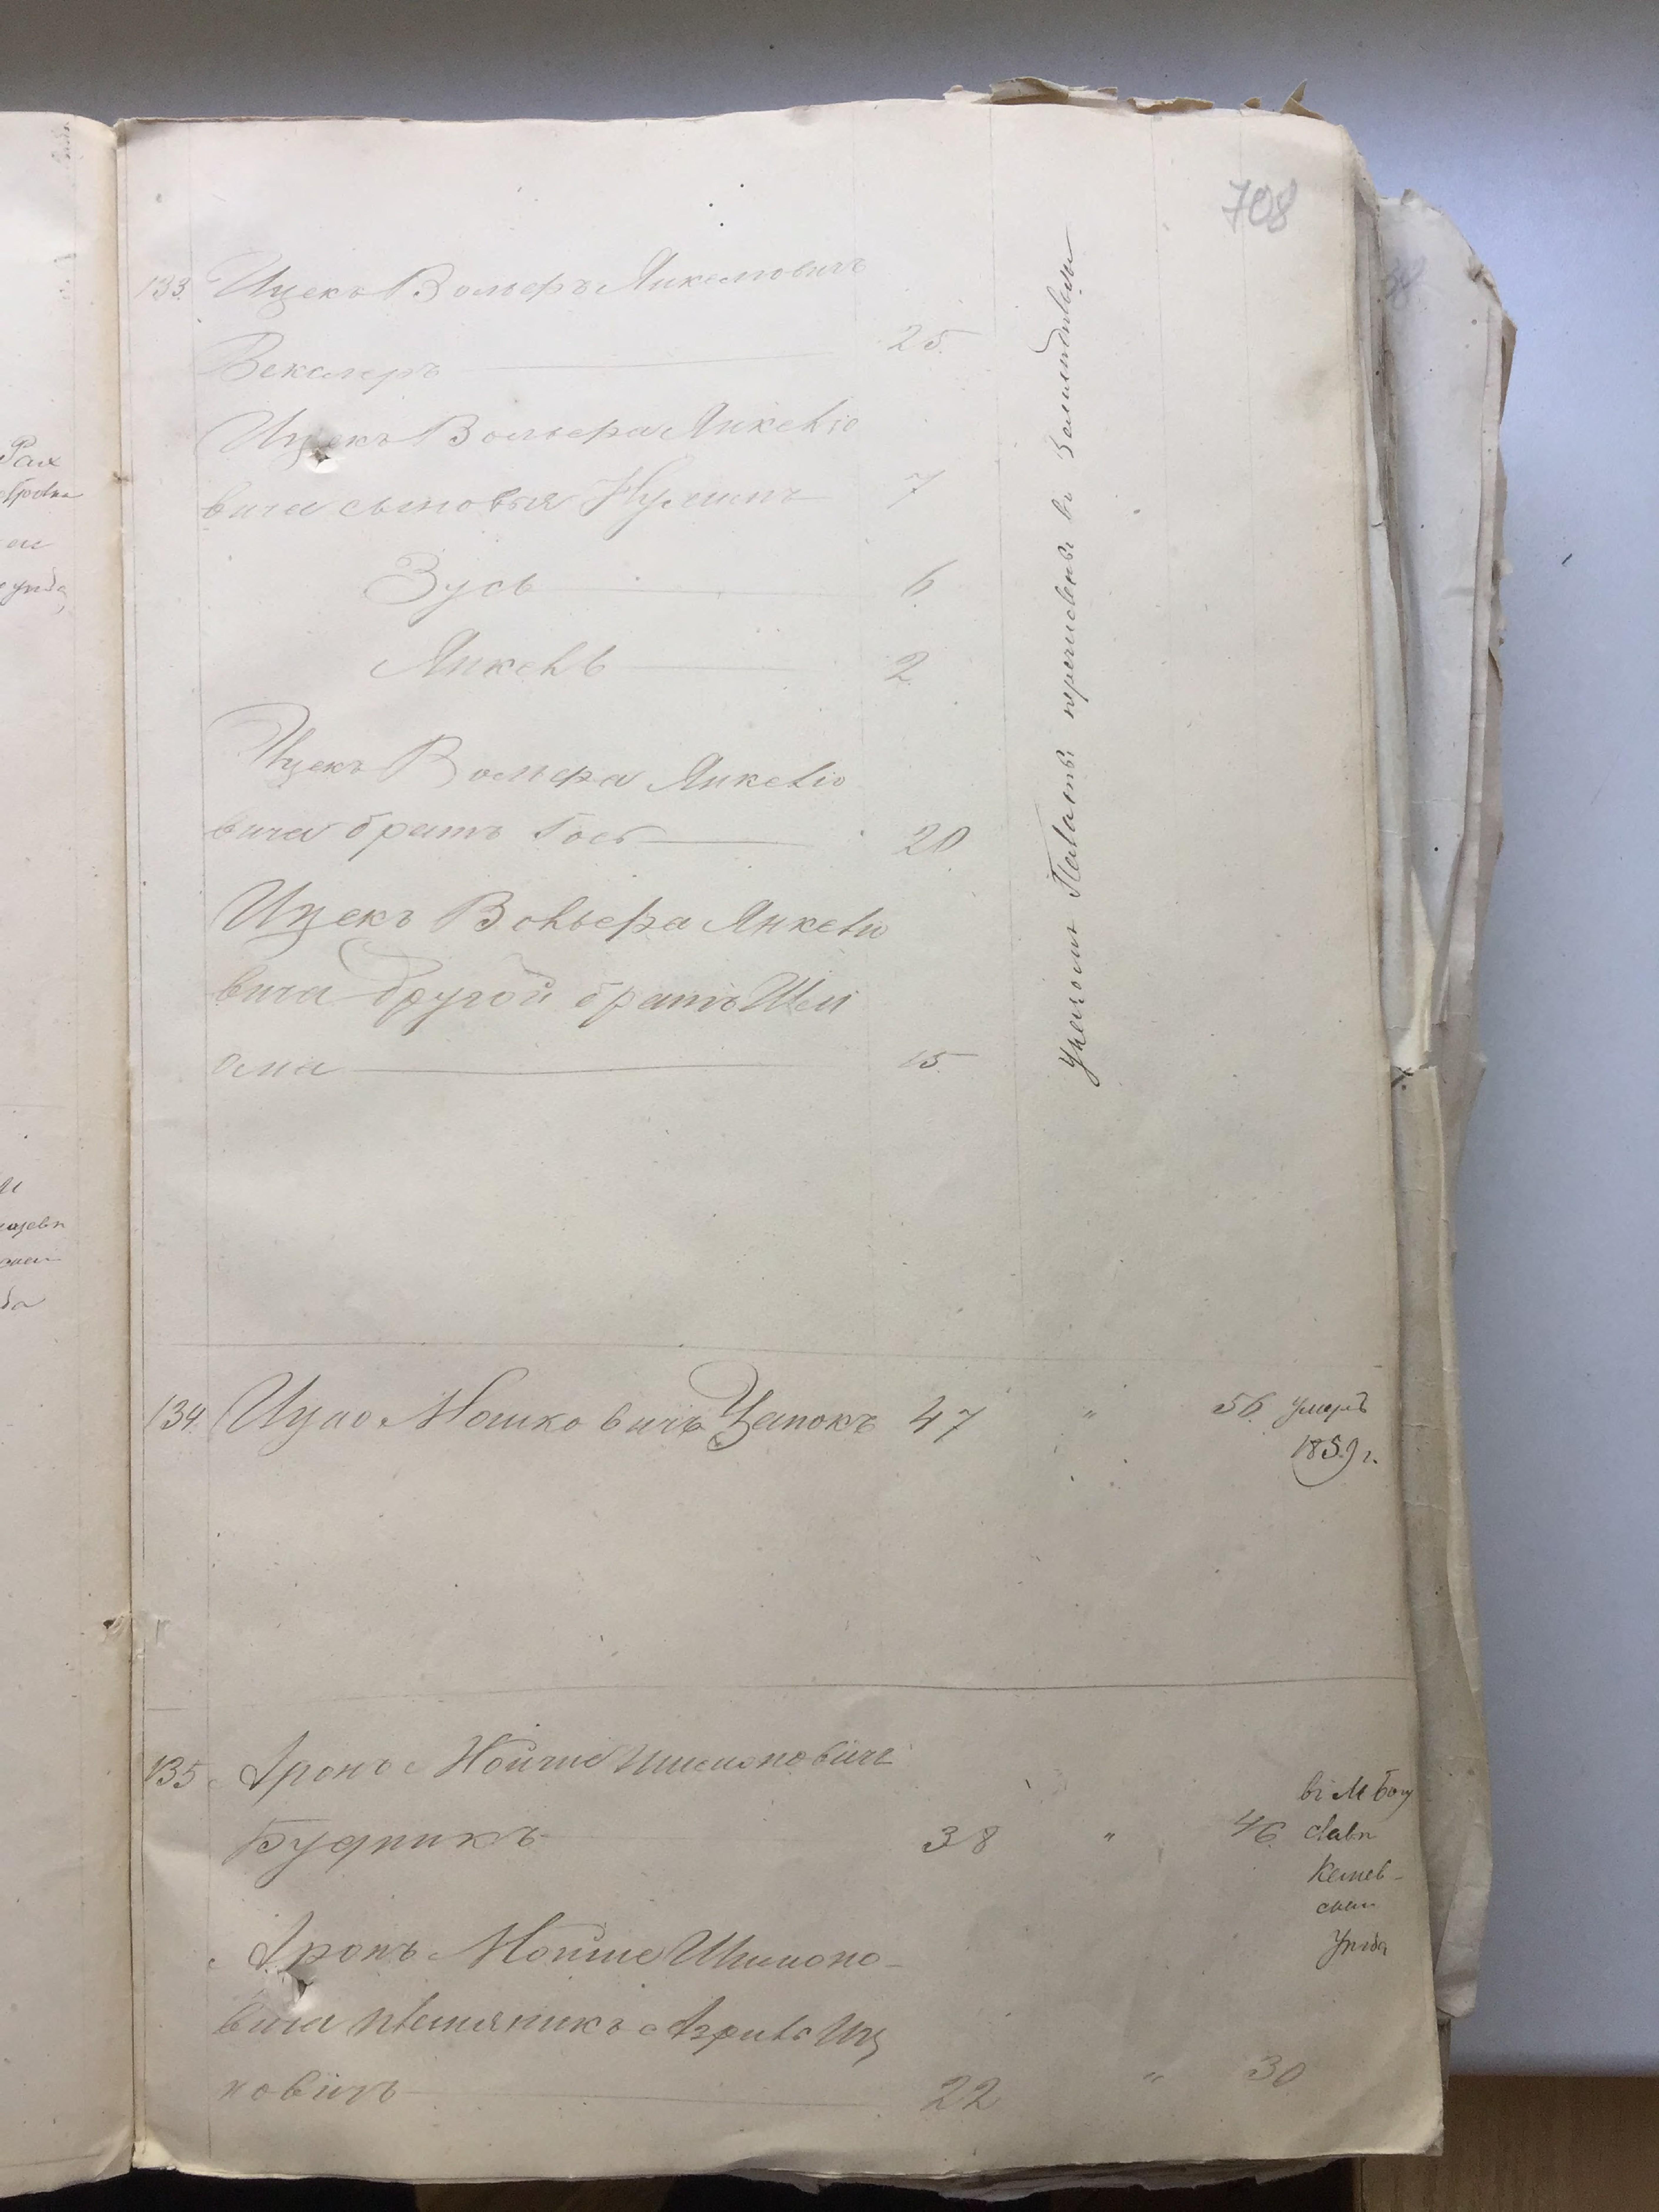 708
133. Ицекъ Вольфъ Янкелiовичъ
Векслеръ 25.
Ицекъ Вольфа Янкелiо
вича сыновья Нухимъ 7
Зусь 6
Янкель 2
Ицекъ Вольфа Янкелiо
вича братъ Гось 20
Ицекъ Вольфа Янкелiо
вича другой братъ Шлi
ома 15
Указомъ Палаты перечисленъ въ Землѣдѣльцы
134. Ицко Мошковичъ Цапокъ 47 " 56. умеръ
1859 г.
135 Аронъ Мойше Шимоновичъ
Будникъ 38 " 46. въ М Богу
славѣ
Канев-
скаго
Уѣзда
Аронъ Мойше Шимоно-
вича племяникъ Азриль Иц
ковичъ 22 " 30